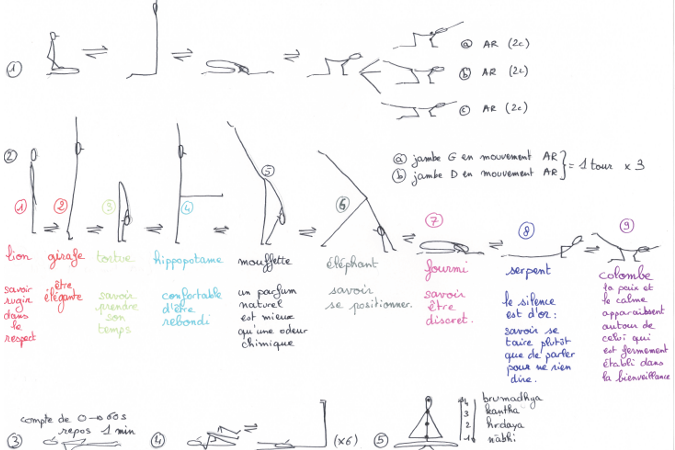 ① ⓐ AR (2c)
ⓑ AR (2c)
ⓒ AR (2c)
② ⓐ jambe G en mouvement AR
ⓑ jambe D en mouvement AR } = 1 tour x 3
① ② ③ ④ ⑤ ⑥ ⑦ ⑧ ⑨
lion
savoir
rugir
dans
le
respect
girafe
être
élégante
tortue
savoir
prendre
son
temps
hippopotame
confortable
d'être
rebondi
mouffette
un parfum
naturel
est mieux
qu'une odeur
chimique
éléphant
savoir
se positionner.
fourmi
savoir
être
discret.
serpent
le silence
est d'or :
savoir se
taire plutôt
que de parler
pour ne rien
dire.
colombe
la paix et
le calme
apparaissent
autour de
celui qui
est fermement
établi dans
la bienveillance
③ compte de 0 → 60s
repos 1 min
④ (x6)
⑤ 4 brumadhya
3 kantha
2 hrdaya
1 nâbhi